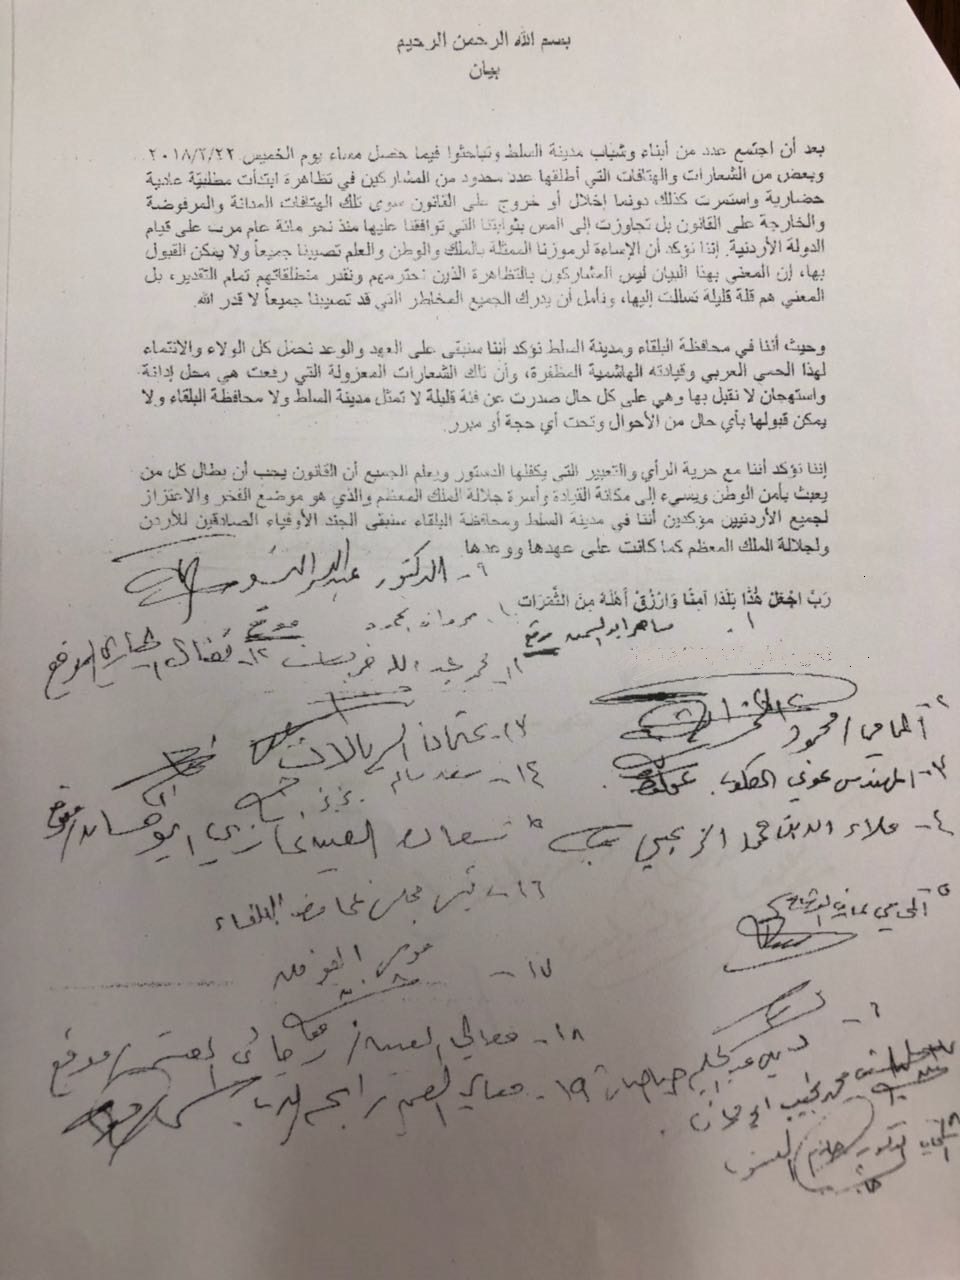 بسم الله الرحمن الرحيم
بيان
بعد أن اجتمع عدد من أبناء وشباب مدينة السلط وتباحثوا فيما حصل مساء يوم الخميس ٢٠١٨/٢/٢٢
وبعض من الشعارات والهتافات التي أطلقها عدد محدود من المشاركين في تظاهرة ابتدأت مطلبية عادية
حضارية واستمرت كذلك دونما إخلال أو خروج على القانون سوى تلك الهتافات المدانة والمرفوضة
والخارجة على القانون بل تجاوزت إلى المس بثوابتنا التي توافقنا عليها منذ نحو مائة عام مرت على قيام
الدولة الأردنية. إننا نؤكد أن الإساءة لرموزنا الممثلة بالملك والوطن والعلم تصيبنا جميعاً ولا يمكن القبول
بها، إن المعني بهذا البيان ليس المشاركون بالتظاهرة الذين نحترمهم ونقدر منطلقاتهم تمام التقدير، بل
المعني هم قلة قليلة تسللت إليها، ونأمل أن يدرك الجميع المخاطر التي قد تصيبنا جميعاً لا قدر الله.
وحيث أننا في محافظة البلقاء ومدينة السلط نؤكد أننا سنبقى على العهد والوعد نحمل كل الولاء والانتماء
لهذا الحمى العربي وقيادته الهاشمية المظفرة، وأن تلك الشعارات المعزولة التي رفعت هي محل إدانة
واستهجان لا نقبل بها وهي على كل حال صدرت عن فئة قليلة لا تمثل مدينة السلط ولا محافظة البلقاء ولا
يمكن قبولها بأي حال من الأحوال وتحت أي حجة أو مبرر.
إننا نؤكد أننا مع حرية الرأي والتعبير التي يكفلها الدستور ويعلم الجميع أن القانون يجب أن يطال كل من
يعبث بأمن الوطن ويسيء إلى مكانة القيادة وأسرة جلالة الملك المعظم والذي هو موضع الفخر والاعتزاز
لجميع الأردنيين مؤكدين أننا في مدينة السلط ومحافظة البلقاء سنبقى الجند الأوفياء الصادقين للأردن
ولجلالة الملك المعظم كما كانت على عهدها ووعدها
٩- الدكتور
رَبِّ اجْعَلْ هَٰذَا بَلَدًا آمِنًا وَارْزُقْ أَهْلَهُ مِنَ الثَّمَرَاتِ
١- ماهر ابو السمن موقع
١٠- مروان الحمود موقع
١١- محمد عبد الله خريسات
١٢- نضال الحياري الموقع
٢- المحامي محمود
١٣-
٣- المهندس عوني
١٤- سعد سالم
٤- علاء الدين محمد
١٥-
٥- المحامي
١٦- رئيس مجلس محافظة البلقاء
موسى العوامله
١٧-
٦-
١٨- معالي العين رجائي المعشر / موقع
٧- محمد نجيب
١٩- معالي
٨- الدكتور حازم